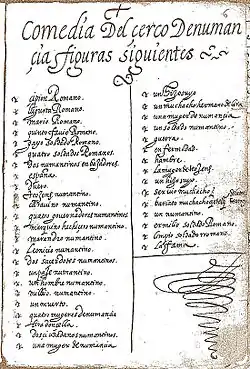 Comedia Del cerco De numan
cia y figuras siguientes
cipion Romano.
Jugurta Romano.
mario Romano.
quinto fauio Romano.
gayo soldado Romano.
quatro soldados Romanos.
Dos numantinos enbajadores.
españa.
duero.
numantino.
numantino.
quatro gouernadores numantinos
marquino hechicero numantino.
marandro numantino.
Leonicio numantino.
Dos sacerdotes numantinos.
un paje numantino.
un hombre numantino.
numantino.
un muerto.
quatro mugeres de numancia
donzella.
Dos ciudadanos numantinos.
una muger de numancia
un hijo suyo
un muchacho hermano de
una muger de numancia
un soldado numantino.
guerra.
enfermedad.
hambre.
La muger de
un hijo suyo.
seruio muchacho
bariato muchacho
un numantino.
ermilio soldado Romano.
limpio soldado rromano.
La fama.